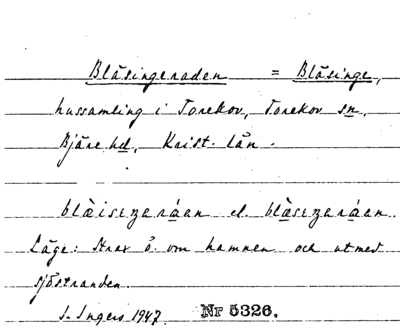 Blåsingeraden = Blåsinge,
hussamling i Torekov, Torekov sn,
Bjäre hd, Krist. län.
blæisezeráen el. blæsezeráen.
Läge: Strax ö. om hamnen och utmed
sjöstranden.
I. Ingers 1947. Nr 5326.